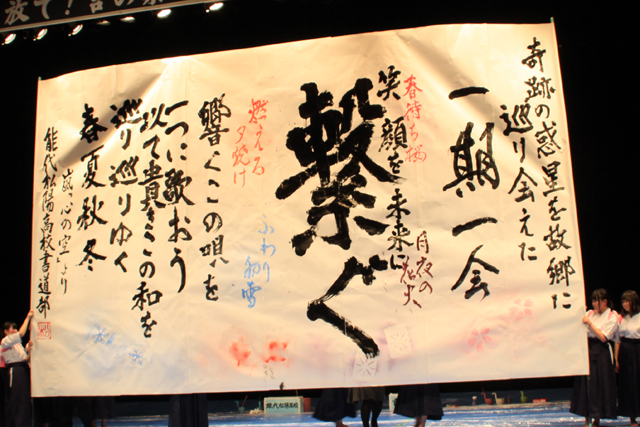 奇跡の惑星を故郷に
巡り会えた
一期一会
春待ち桜
笑顔を未来に
月夜の花火
繋ぐ
燃える
夕焼け
ふわり
初雪
響くこの唄を
一つに歌おう
以て貴きこの和を
巡り巡りゆく
春夏秋冬
嵐 心の空より
能代松陽高校書道部
能代松陽高校